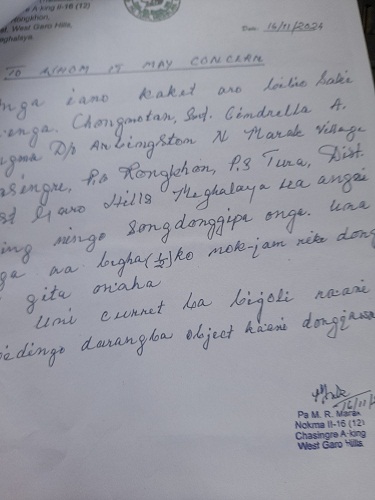 e A-king II-16 (12)
ongkhon,
st. West Garo Hills,
eghalaya
Date: 16/11/2024
TO WHOM IT MAY CONCERN
nga iano kakat aro
enga. Chongmotan, Smt. Cindrella A.
ngma D/o Arbingstom N Marak Village
asingre, P.o Rongkhon, P.S Tura, Dist.
st Garo Hills Meghalaya na angni
ing ningo songdonggipa onga. Una
ga wa bigha (1/2) ko nok-jam rike dong
gita on'aha
Uni current ba bijoli naani
edingo darangba object ka'ani dongjawa
16/11/2
Pa M. R. Marak
Nokma II-16 (12)
Chasingre A-king
West Garo Hills.